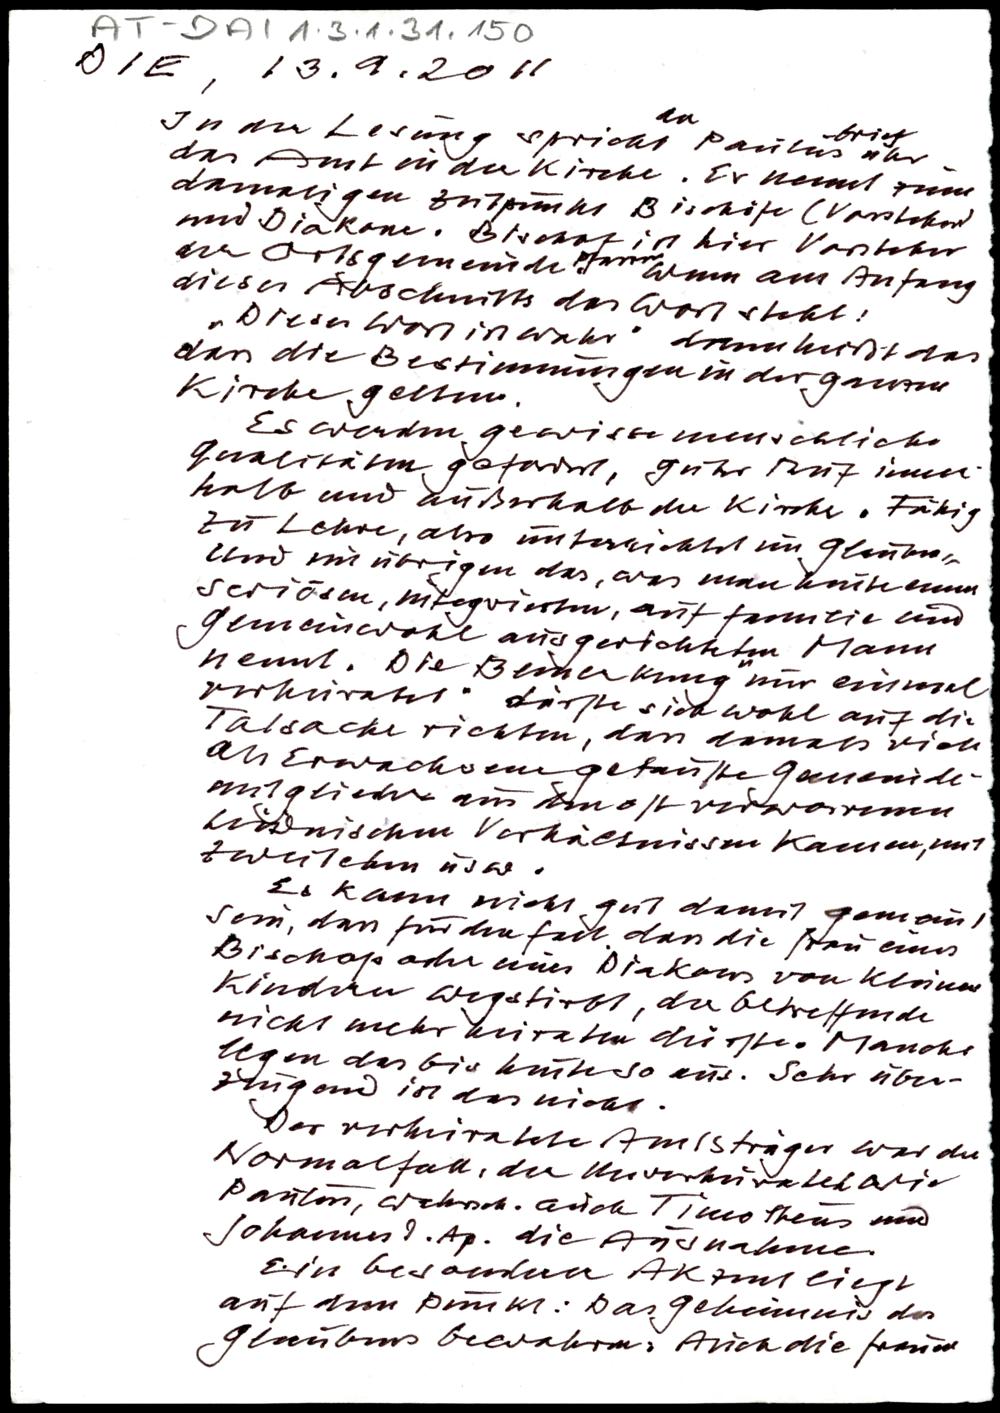 AT-DAI 1.3.1.31.150
DIE, 13.9.2011
In der Lesung spricht der Paulusbrief über
das Amt in der Kirche. Er nennt zum
damaligen Zeitpunkt Bischöfe (Vorsteher)
und Diakone. Bischof ist hier Vorsteher
der Ortsgemeinde. Pfarrer Wenn am Anfang
dieses Abschnitts das Wort steht:
„Dieses Wort ist wahr" dann heißt das
dass die Bestimmungen in der ganzen
Kirche gelten.
Es werden gewisse menschliche
Qualitäten gefordert, guter Ruf inner-
halb und außerhalb der Kirche. Fähig
zu Lehre, also unterrichtet im Glauben,
und im übrigen das, was man heute einen
seriösen, integrierten, auf Familie und
Gemeinwohl ausgerichteten Mann
nennt. Die Bemerkung "nur einmal
verheiratet" dürfte sich wohl auf die
Tatsache richten, dass damals viele
als Erwachsene getaufte Gemeinde-
mitglieder aus den oft verworrenen
heidnischen Verhältnissen kamen, mit
Zweitehen usw.
Es kann nicht gut damit gemeint
sein, dass für den Fall, dass die Frau eines
Bischofs oder eines Diakons von kleinen
Kindern wegstirbt, der betreffende
nicht mehr heiraten dürfte. Manche
legen das bis heute so aus. Sehr über-
zeugend ist das nicht.
Der verheiratete Amtsträger war der
Normalfall, der Unverheiratete wie
Paulus, wahrsch. auch Timotheus und
Johannes d. Ap. die Ausnahme.
Ein besonderer Akzent liegt
auf dem Punkt: Das Geheimnis des
Glaubens bewahren: Auch die Frauen